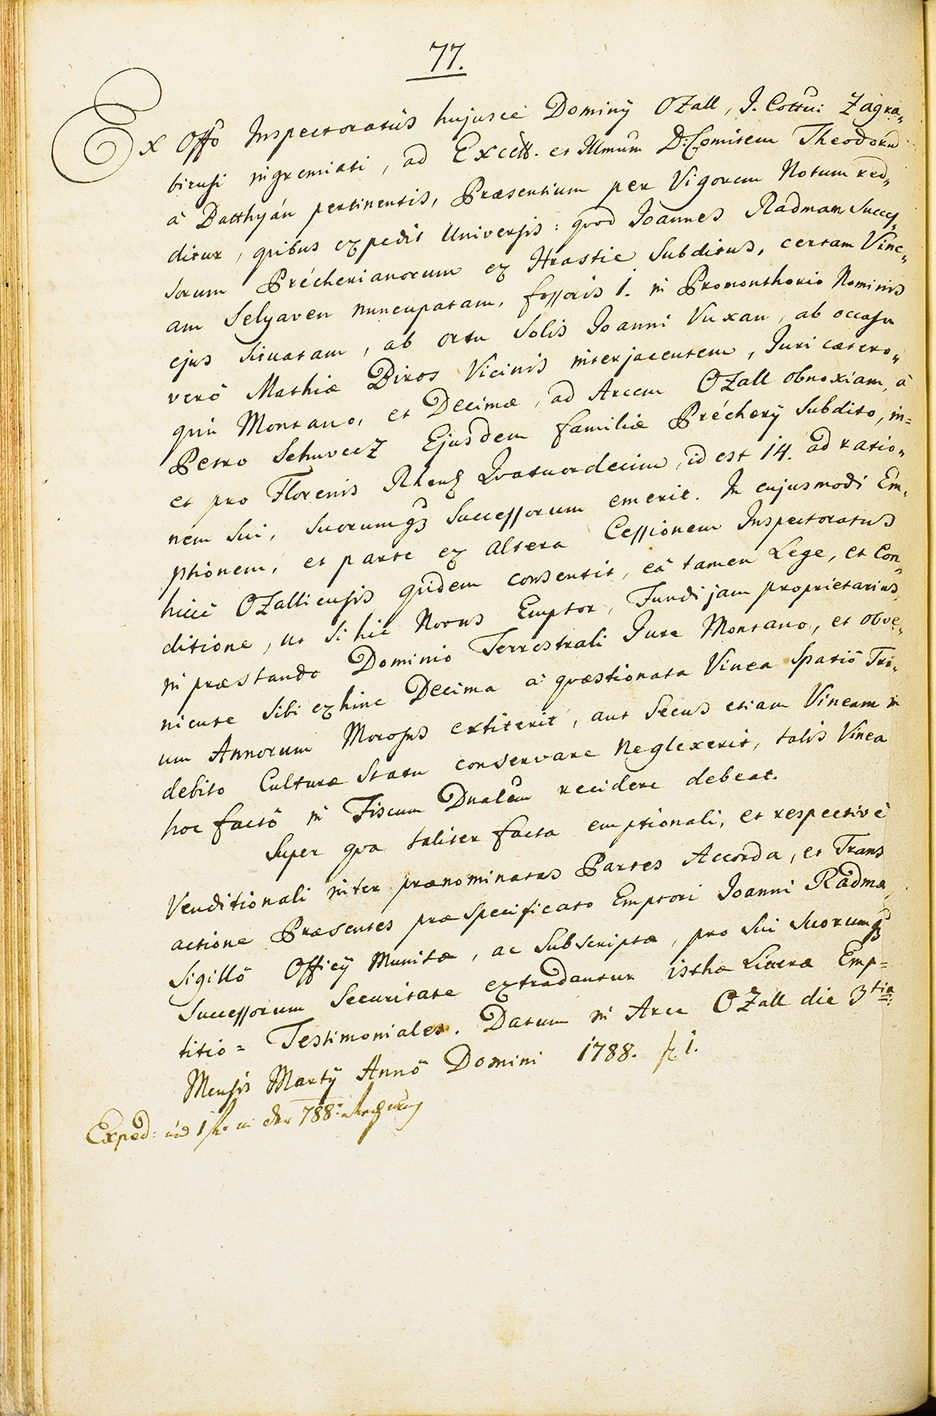 77.
Ex Offo Inspectoratûs hujusce Dominÿ Ozall, I. Cottui Zagra„
biensi ingremiati, ad Excell. et Illmum D. Comitem Theodorum
à Batthyán pertinentis, Præsentium per Vigorem Notum red„
ditur, quibus expedit Universis: quod Joannes Radman Succes„
sorum Précherianorum ex Hrastie Subditus, certam Vine„
am Selyaven nuncupatam, fossoris 1. in Promonthorio Nominis
ejus situatam, ab ortu Solis Joanni Vuxan, ab occasu
verò Mathiæ Biros Vicinis interjacentem, Juri cætero„
quin Montano, et Decimæ, ad Arcem Ozall obnoxiam, à
Petro Sehuvecz Ejusdem familiæ Précherÿ Subdito, in„
et pro Florenis Rhen Quatuordecim, id est 14. ad ratio„
nem Sui, Suorumq3 Successorum emerit. In cujusmodi Em„
ptionem, et parte ex altera Cessionem Inspectoratus
hicce Ozalliensis quidem consentit, eâ tamen Lege, et Con„
ditione, ut Si hic Novus Emptor, Fundi jam proprietarius,
in præstando Dominio Terrestrali Jure Montano, et obve„
niente Sibi exhinc Decima à quæstionata Vinea Spatiô Tri„
um Annorum Morosus extiterit, aut Secus etiam Vineam in
debito Culturæ Statu conservare neglexerit, talis Vinea
hoc factô in Fiscum Dnalem recidere debeat.
Super qva taliter facta emptionali, et respectivè
Venditionali inter prænominatas Partes Accorda, et Trans
actione Præsentes præspecificato Emptori Joanni Radma
Sigillô Officÿ Munitæ, ac Subscriptæ, pro Sui Suorumq3
Successorum Securitate extradantur isthæ Literæ Emp=
titio = Testimoniales. Datum in Arce Ozall die 3tia
Mensis Martÿ Annô Domini 1788. f 1.
Exped: 1 in der 788